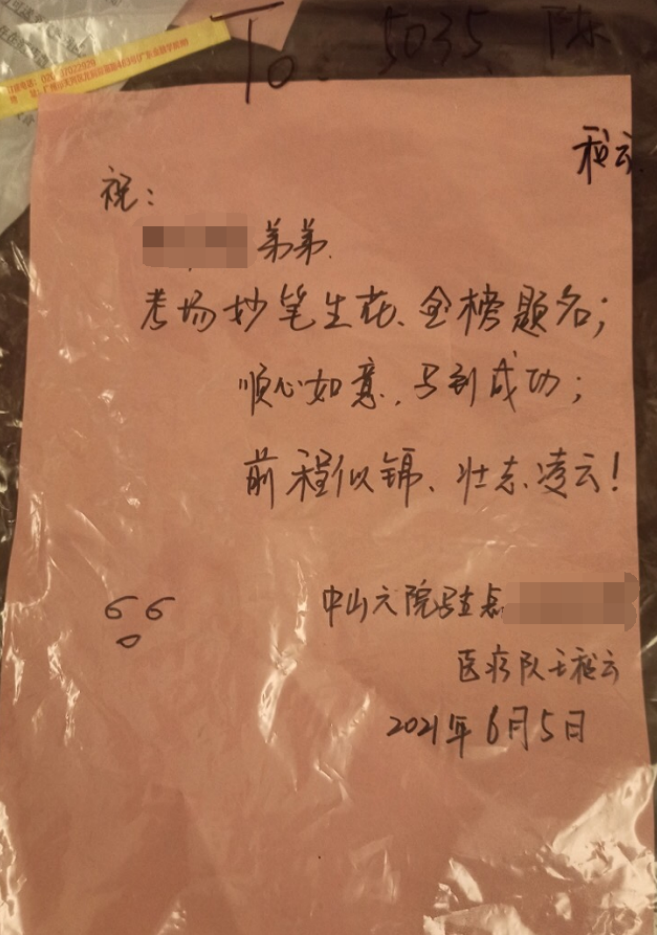 To: 5035 陈
祝:
弟弟.
考场妙笔生花、金榜题名;
顺心如意,马到成功;
前程似锦、壮志凌云!
中山六院驻点
医疗队
2021年6月5日